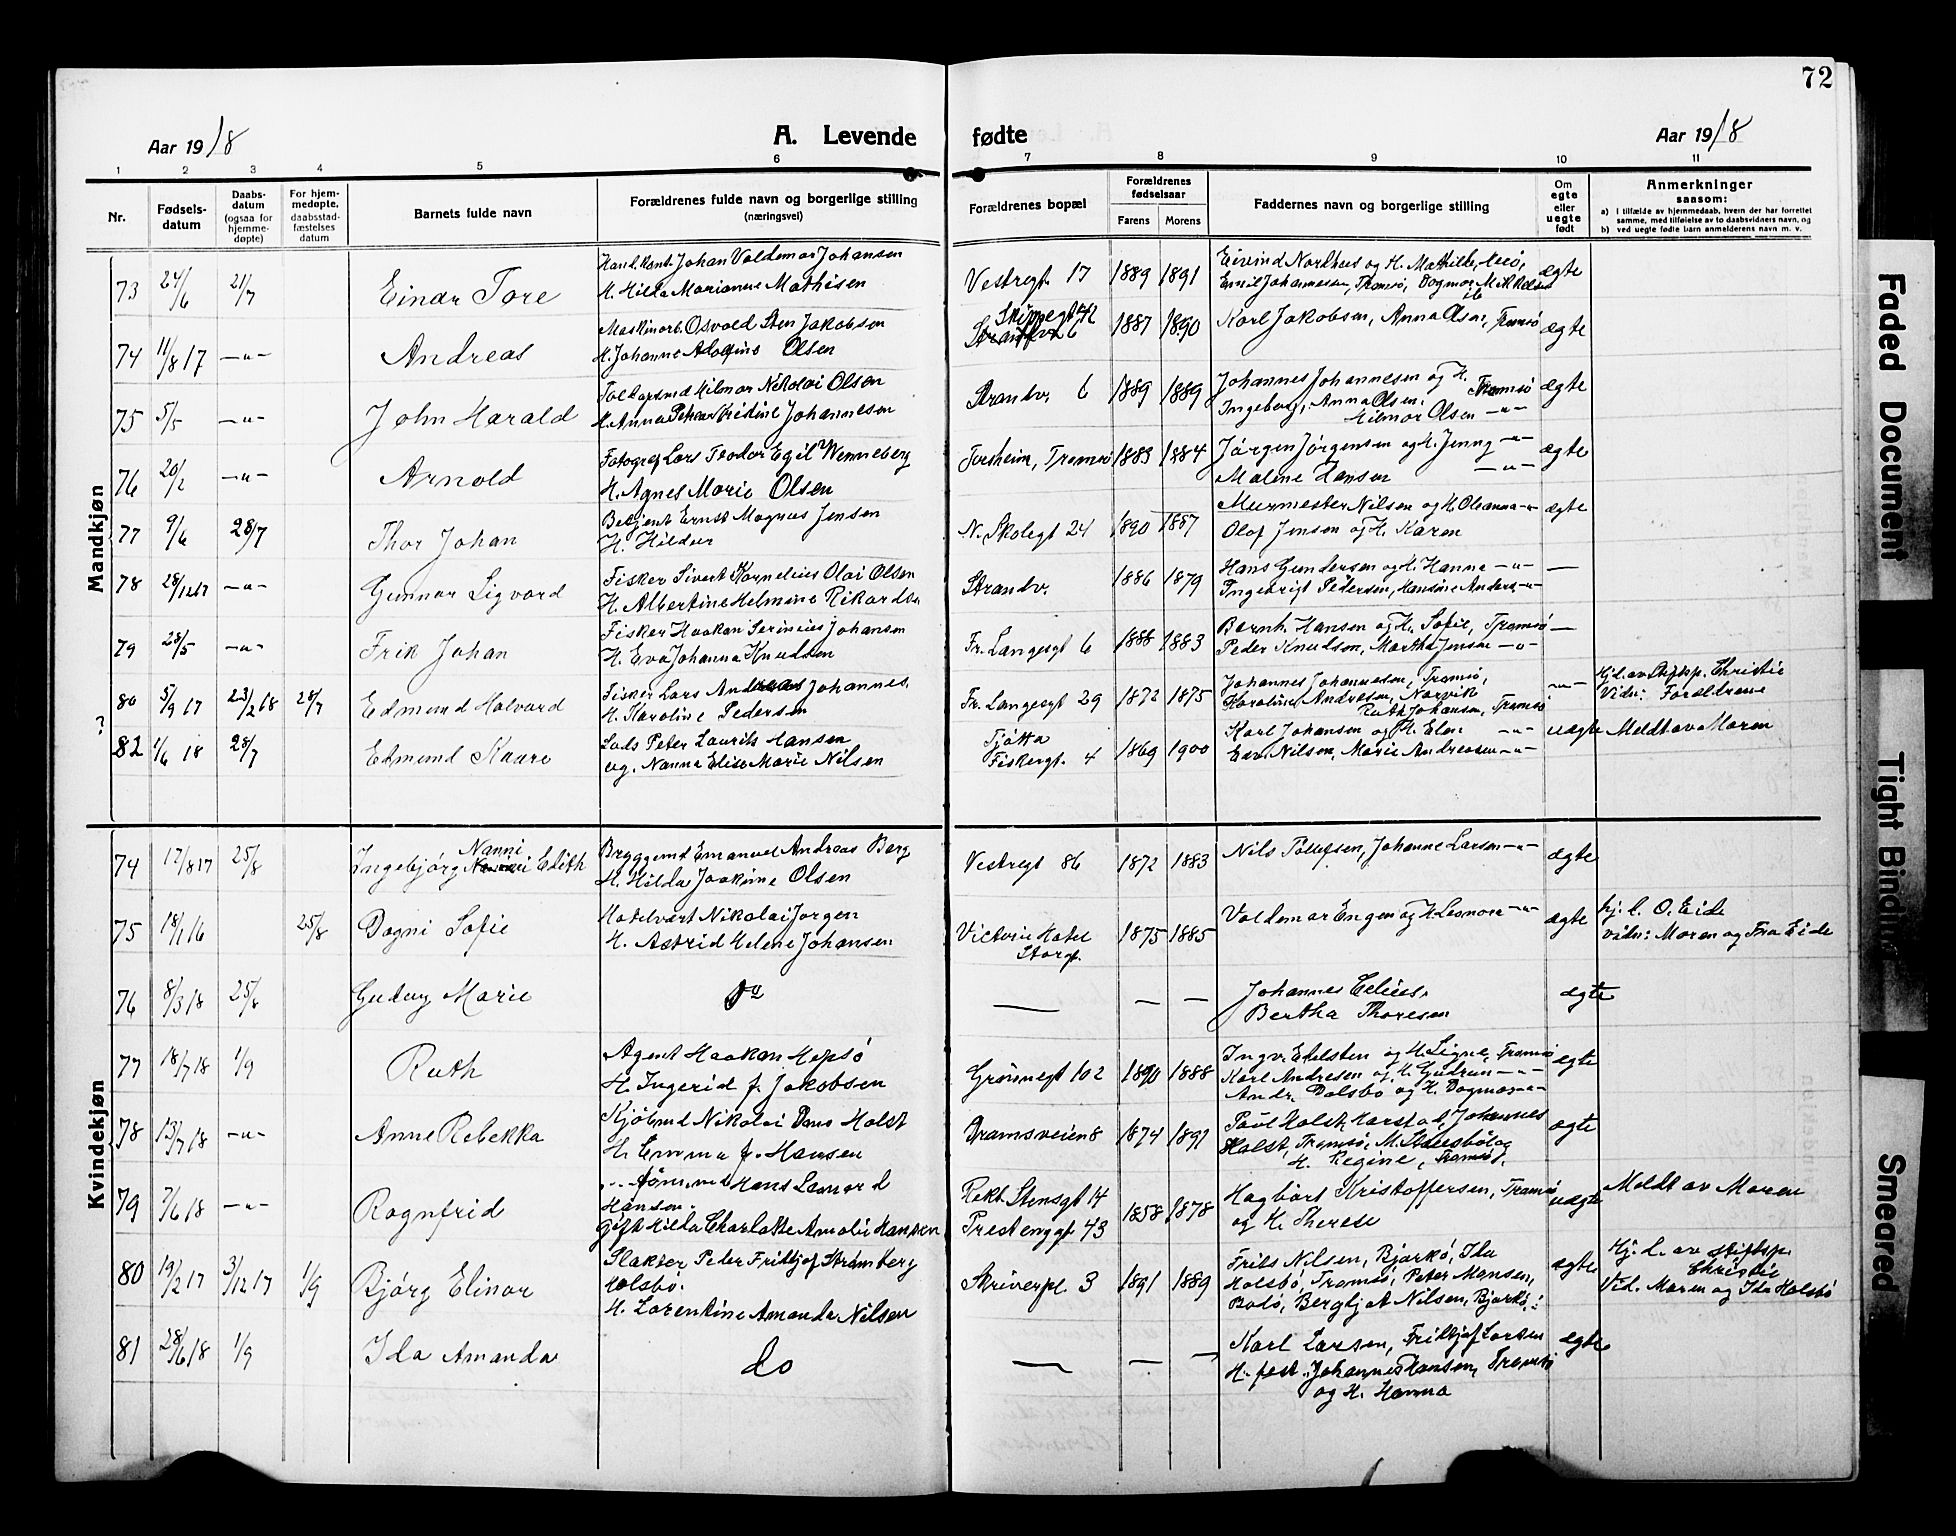 72
Aar 1918 A. Levende fødte Aar 1918
1 2 3 4 5 6 7 8 9 10 11
Nr. Fødselsdatum Daabsdatum (ogsaa for hjemmedøpte) For hjemmedøpte, daabsstadfæstelses datum Barnets fulde navn Forældrenes fulde navn og borgerlige stilling (næringsvei) Forældrenes bopæl Forældrenes fødselsaar Farens Morens Faddernes navn og borgerlige stilling Om egte eller uegte født Anmerkninger saasom:
a) I tilfælde av hjemmedaab, hvem der har forrettet samme, med tilføielse av to daabsvidners navn, og
b) ved uegte fødte barn anmelderens navn m. v.
Mandkjøn
73 24/6 21/7 Einar Tore Johan Valdemar Johansen Vestregt. 17 1889 1891 Eivind Nordhus og H. Mathilde, ægte
H. Hilda Marianne Mathisen Emil Johannessen, Tromsø, Dagmar Mikkelsen
74 11/8 17 -"- Andreas Maskinarb. Osvald Sten Jakobsen Skippegt 42 1887 1890 Karl Jakobsen, Anna Olsen, Tromsø ægte
H. Johanne Adolfine Olsen
75 5/5 -"- John Harald Hilmar Nikolai Olsen Strandv. 6 1889 1889 Johannes Johannesen og H. Tromsø ægte
H. Anna Petra Kristine Johannesen Ingeborg, Anna Olsen,
Hilmar Olsen -"-
76 20/2 -"- Arnold Fotograf Lars Teodor Egil Wenneberg Forsheim, Tromsø 1883 1884 Jørgen Jørgensen og H. Jenny -"- ægte
H. Agnes Marie Olsen Malene Hansen -"-
77 9/6 28/7 Thor Johan Betjent Ernst Magnus Jensen N. Skolegt 24 1890 1887 Murmester Nilsen og H. Oleanna -"- ægte
H. Hildur Olaf Jensen og H. Karen
78 28/12 17 -"- Gunnar Sigvard Fisker Sivert Kornelius Olai Olsen Strandv. 1886 1879 Hans Gundersen og H. Hanna -"- —
H. Albertine Helmine Rikardsen Ingebrigt Pedersen, Hansine Anders. -"-
79 28/5 -"- Erik Johan Fisker Haakon Serinius Johansen Fr. Langesgt 6 1888 1883 Bernh. Hansen og H. Sofie, Tromsø —
H. Eva Johanna Knudsen Peder Knudsen, Martha Jensen -"-
80 5/9 17 23/2 18 28/7 Edmund Halvard Fisker Lars Andreas Johannes. Fr. Langesgt 29 1872 1875 Johannes Johannessen, Tromsø, -"- Hj.d. av Stiftsp. Christie
H. Karoline Pedersen Karoline Andresen, Narvik Vidn: Forældrene
Ruth Johansen, Tromsø
?
82 1/6 18 28/7 Edmund Kaare Lods Peter Laurits Hansen Tjøtta 1869 1900 Karl Johansen og H. Elen -"- uegte Meldt av Moren
ug. Nanna Elise Marie Nilsen Fiskergt. 4 Edv. Nilsen, Marie Andreasen -"-
Kvindekjøn
74 17/8 17 25/8 Ingebjørg Nanni Edith Bryggemd Emanuel Andreas Berg Vestregt 86 1872 1883 Nils Tollefsen, Johanne Larsen -"- ægte
H. Hilda Joakime Olsen
75 18/1 16 25/8 Dagni Sofie Hotelvært Nikolai Jørgen Victoria Hotel 1875 1885 Valdemar Engen og H. Leonora -"- ægte hj. d. O. Eide
H. Astrid Helene Johansen Storgt. vidn: Moren og Fru Eide
76 8/3 18 25/8 Gudny Marie Do — — — Johannes ægte
Bertha Thoresen
77 18/7 18 1/9 Ruth Agent Haakon Hepsø Grønnegt 102 1890 1888 Ingv. Edelsten og H. Signe, Tromsø ægte
H. Ingerid f. Jakobsen Karl Andresen og H. Gudrun -"-
Andr. Dalsbo og H. Dagmar -"-
78 13/7 18 -"- Anne Rebekka Kjøbmd Nikolai Daus Holst Dramsveien 8 1874 1891 Paul Holst, Harstad, Johannes ægte
H. Emma f. Hansen Holst, Tromsø, M. og
H. Regine, Tromsø.
79 7/6 18 -"- Ragnfrid Hans Leonard Rekt. Stensgt 14 1858 1878 Hagbart Kristoffersen, Tromsø uægte Meldt av Moren
Hansen. Prestenggt 43 og H. Therese
gift Hilda Charlotte Amalie Hansen
80 19/2 17 3/12 17 1/9 Bjørg Elinor Slakter Peder Fridtjof Strømberg Skriverpl 3 1891 1889 Frits Nilsen, Bjarkø, Ida ægte Hj. d. av Stiftsp.
Holsbø. Holsbø, Tromsø, Peter Hansen, Christie
H. Lorentine Amanda Nilsen Bodø, Bergljot Nilsen, Bjarkø. Vid. Moren og Ida Holsbø
81 28/6 18 1/9 Ida Amanda do — — — Karl Larsen, Fridtjof Larsen ægte
H. Johannes Hansen, Tromsø
og H. Hanna
Faded Document
Tight Binding
Smeared